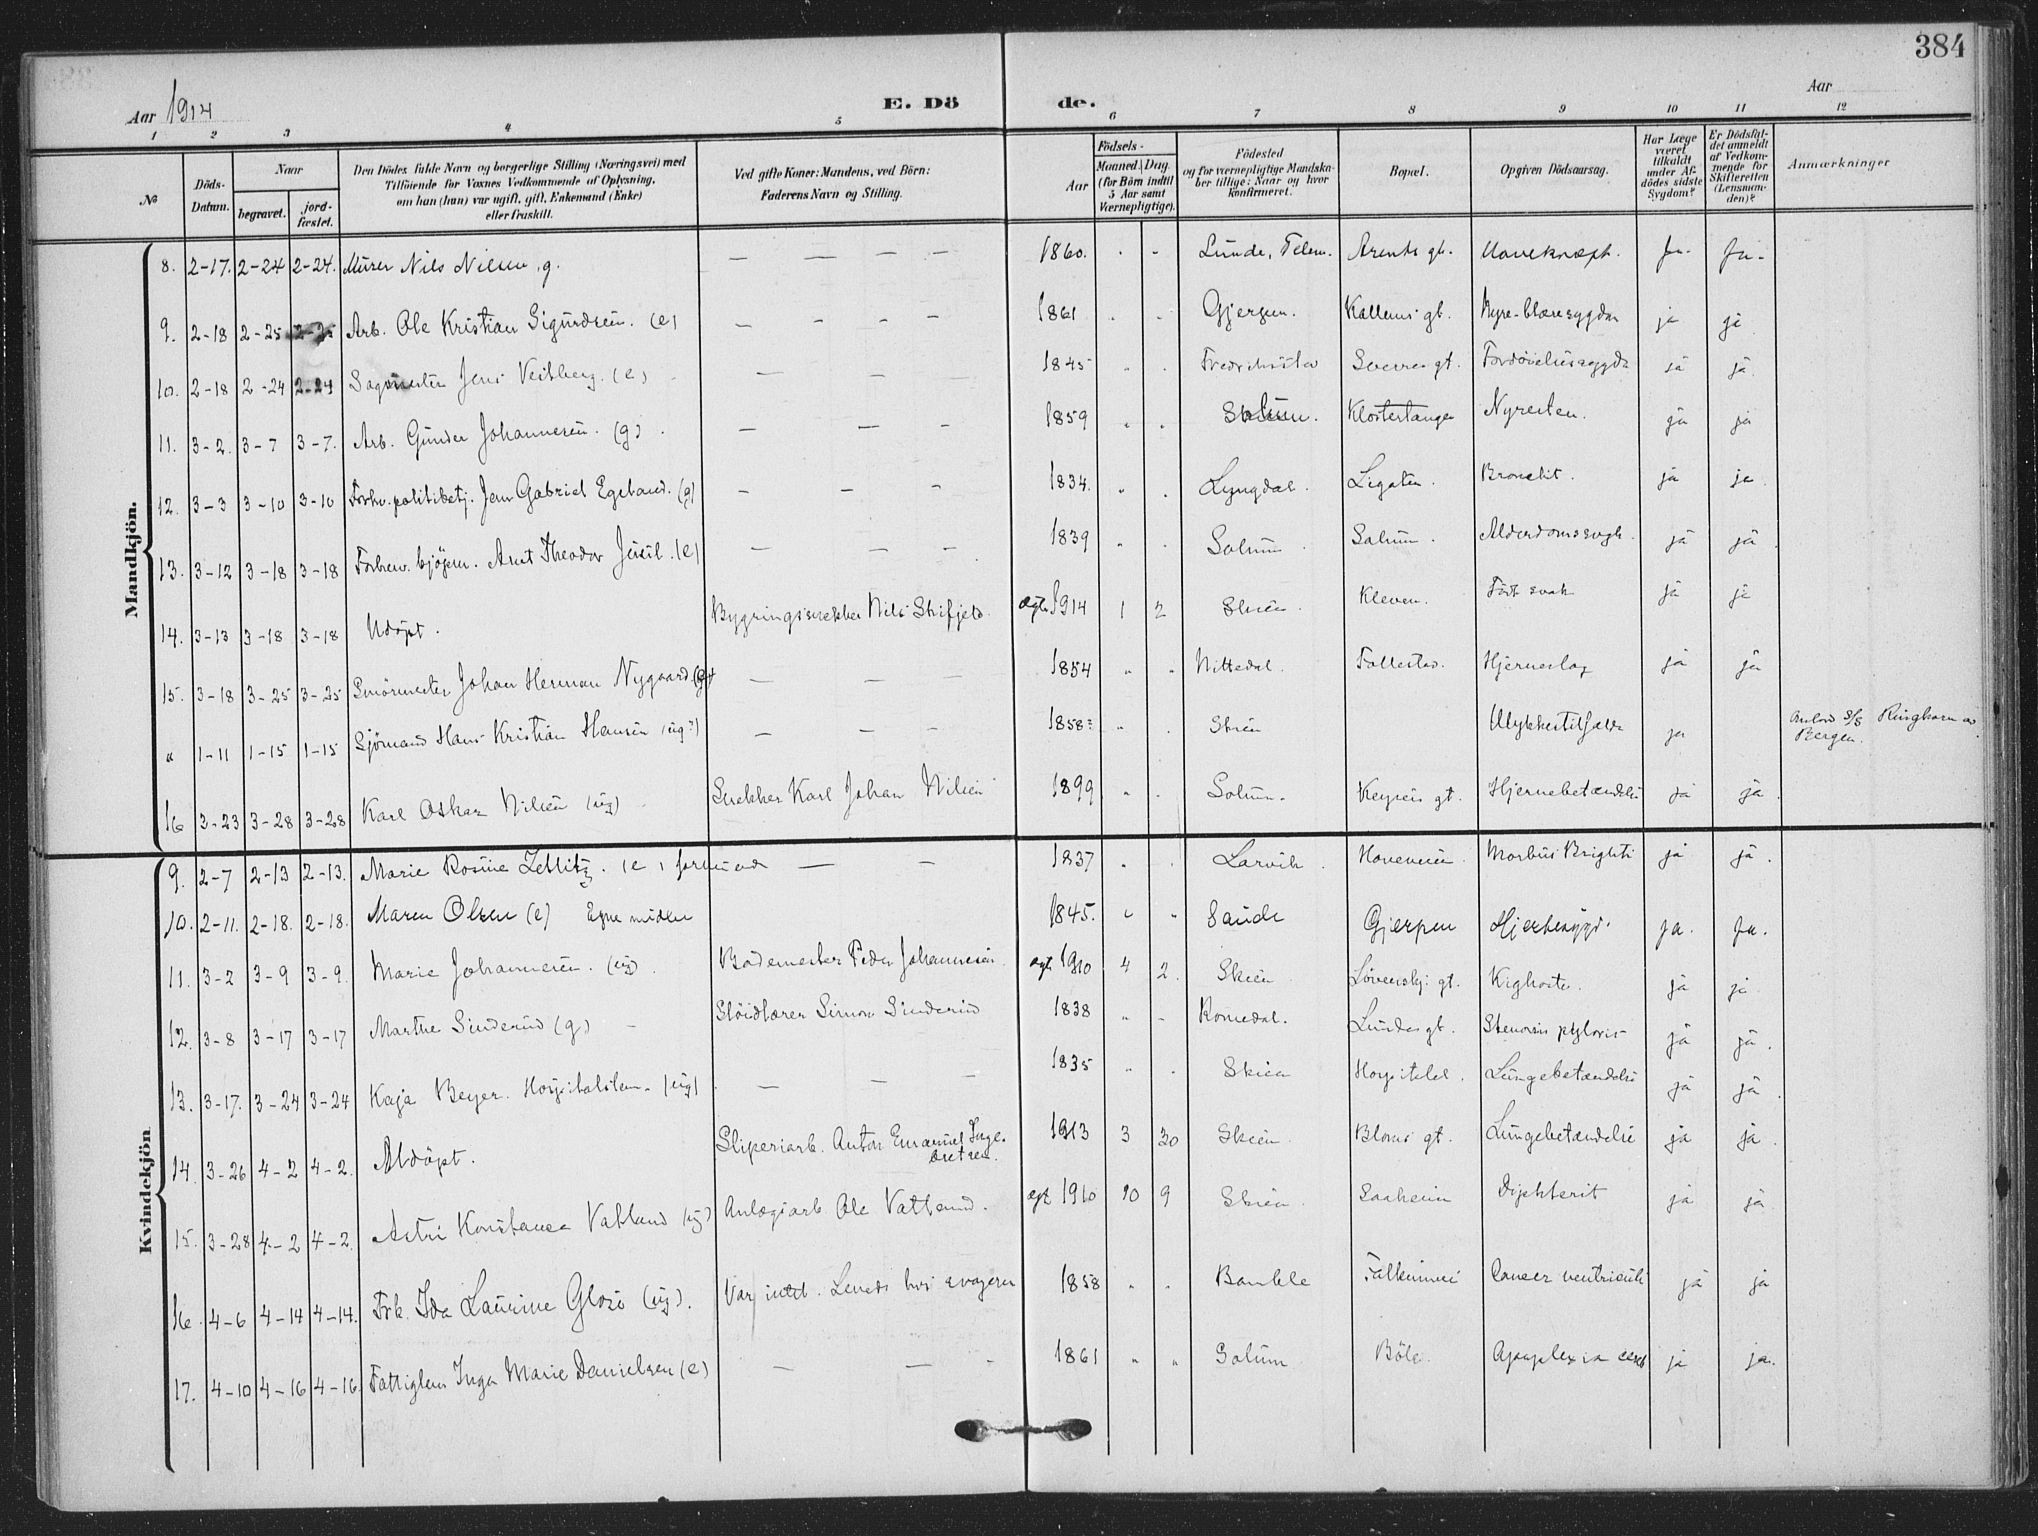 384
Aar 1914
E. Dö
de.
Aar
1 2 3 4 5 6 7 8 9 10 11 12
№
Döds-Datum.
Naar
begravet.
jord-fæstet.
Den Dödes fulde Navn og borgerlige Stilling (Næringsvei) med
Tilföiende for Voxnes Vedkommende af Oplysning,
om han (hun) var ugift, gift, Enkemand (Enke)
eller fraskilt.
Ved gifte Koner: Mandens, ved Börn:
Faderens Navn og Stilling.
Födsels-
Aar
Maaned. Dag.
(for Börn indtil
5 Aar samt
Værnepligtige).
Födested
og for værnepligtige Mandska-
ber tillige: Naar og hvor
konfirmeret.
Bopæl.
Opgiven Dödsaarsag.
Har Læge
været
tilkaldt
under Af-
dödes sidste
Sygdom?
Er Dödsfal-
det anmeldt
af Vedkom-
mende for
Skifteretten
(Lensman-
den)?
Anmærkninger
Mandkjön.
8. 2-17. 2-24 2-24. Murer Nils Nilsen, g. — — — — 1860. Lunde, Telem. Arents gt. Mavekræft. Ja. Ja.
9. 2-18 2-25 2-25 Arb. Ole Kristian Sigurdsen. (e) — — — — 1861 Gjerpen. Kallums gt. Nyre-blæresygdom ja ja
10. 2-18 2-24 2-24 Sagmester Jens Veitberg. (e) — — — 1845 Fredrikstad Sverres gt. Fordøielsessygdom ja ja
11. 3-2. 3-7 3-7. Arb. Gunder Johannesen. (g) — — — 1859 Solum. Klostertangen Nyresten. ja ja
12. 3-3 3-10 3-10 Forhv. politibetj. Jens Gabriel Egeland. (g) — — — 1834. Lyngdal. Ligaten. Bronchit. ja ja
13. 3-12 3-18 3-18 Forhenv. bjøgm. Arnt Theodor Juul. (e) — — — 1839 Solum Solum. Alderdomssvagh. ja ja
14. 3-13 3-18 3-18 Udøpt. Bygningssnekker Nils Skifjeld. ægte 1914 1 2 Skien. Kleven. Født svak ja ja
15. 3-18 3-25 3-25 Smørmester Johan Herman Nygaard. (g) — — — 1854 Nittedal. Follestad. Hjerneslag ja ja
" 1-11 1-15 1-15 Sjømand Hans Kristian Hansen (ug?) — — — 1858? Skien Ulykkestilfælde ja Ombord S/S Ringhorn av Bergen.
16 3-23 3-28 3-28 Karl Oskar Nilsen (ug) Snekker Karl Johan Nilsen 1899 Solum. Keysers gt. Hjernebetændelse ja ja
Kvindekjön
9. 2-7 2-13 2-13. Marie Rosine Zetlitz. (e) formuend — — 1837 Larvik. Haveveien. Morbus Brighti ja ja.
10. 2-11. 2-18. 2-18. Maren Olsen (e) Egne midler 1845. Saude Gjerpen Hjertesygd. ja. ja.
11. 3-2 3-9 3-9. Marie Johannesen. (ug) Bademester Peder Johannesen ægt. 1910 4 2. Skien Løvenskj. gt. Kighoste. ja ja
12. 3-8 3-17 3-17 Marthe Sinderud (g) Sløidlærer Simon Sinderud 1838 Romedal. Lundes gt. Stenosis pylori ja ja.
13. 3-17. 3-24 3-24 Kaja Beyer. Hospitalslem. (ug) — — — 1835 Skien Hospitalet. Lungebetændelse ja ja
14. 3-26 4-2 4-2. Udøpt. Sliperiarb. Anton Emanuel Ingebretsen. 1913 3 30 Skien. Bloms gt. Lungebetændelse ja ja.
15. 3-28 4-2 4-2. Astri Konstance Vatland (ug) Anlægsarb. Ole Vatland. ægt 1910 10 9 Skien. Saaheim Difterit ja ja
16. 4-6 4-14 4-14. Frk. Ida Laurine Gloso (ug). Var intet. Levede hos svogeren 1858 Bamble Falkumvei Cancer ventriculi ja ja
17. 4-10 4-16 4-16. Fattiglem Inga Marie Danielsen (e) — — 1861 Solum Bøle. Apoplexia cereb ja ja.